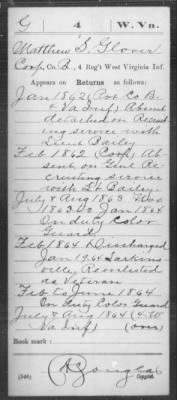 G 4 W. Vn.
Matthew S. Glover
Corp, Co. B, 4 Reg't West Virginia Inf.
Appears on Returns as follows:
Jan 1862 (Pvt Co B
Va Inf) Absent
detached on Recruit
ing service with
Lieut Bailey
Feb 1862 (Corp) Ab
sent on Genl Re
cruiting service
with Lt Bailey
July & Aug 1863
1863 to Jan 1864
On duty Color
Guard
Feb 1864 Discharged
Jan 19.64 Larkins
ville, Reenlisted
as Veteran
Feb to June 1864
On duty Color Guard
July & Aug 1864 (4 W
Va Inf)
Book mark:
(546) Copyist.